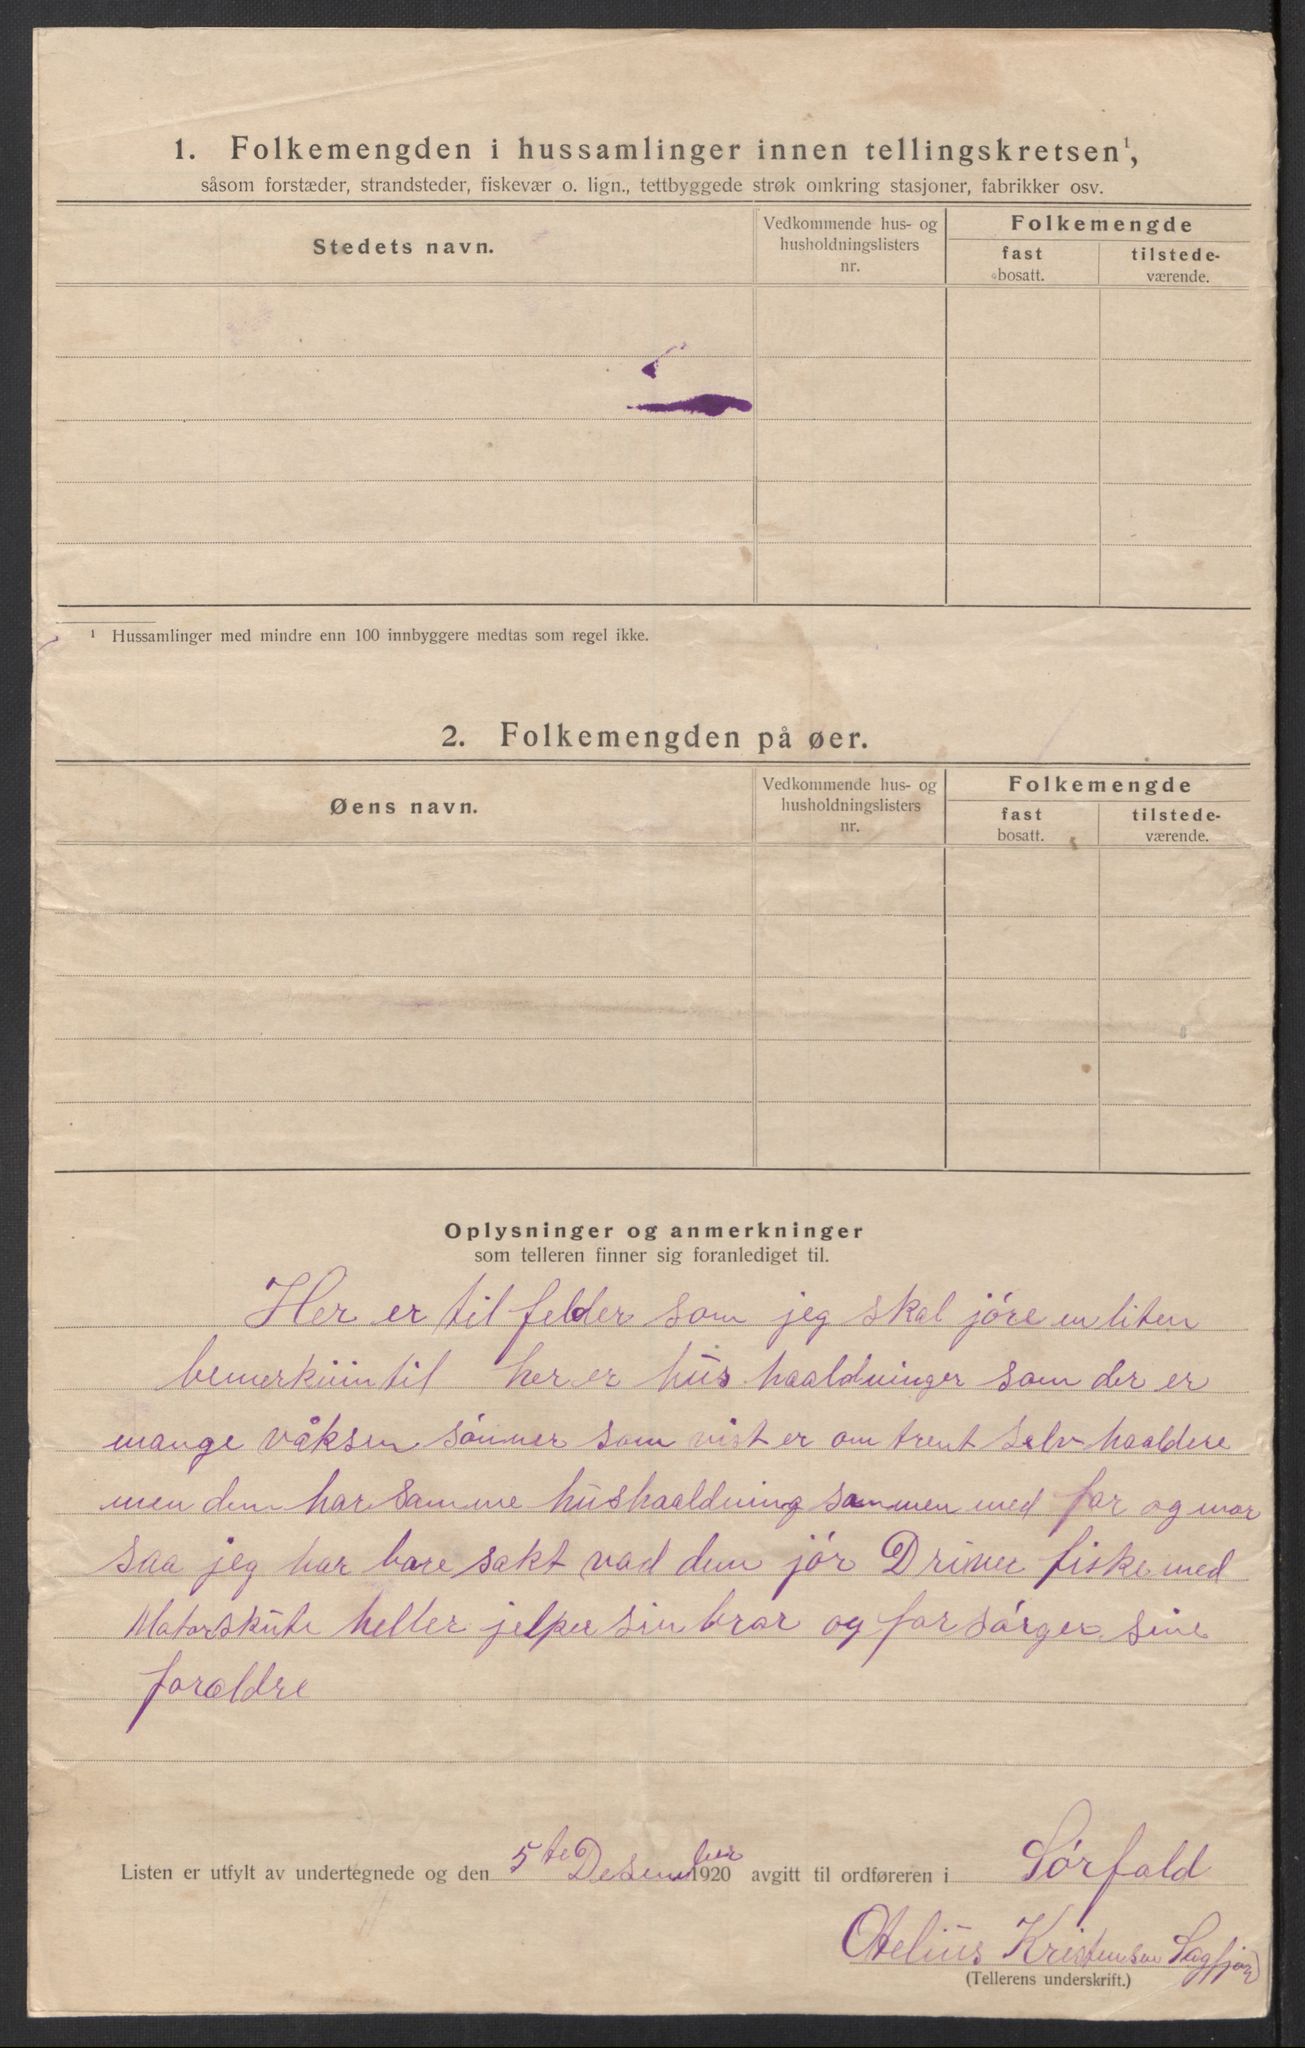 1. Folkemengden i hussamlinger innen tellingskretsen¹,
såsom forstæder, strandsteder, fiskevær o. lign., tettbyggede strøk omkring stasjoner, fabrikker osv.
Stedets navn.
Vedkommende hus- og
husholdningslisters
nr.
Folkemengde
fast
bosatt.
tilstede-
værende.
¹ Hussamlinger med mindre enn 100 innbyggere medtas som regel ikke.
2. Folkemengden på øer.
Øens navn.
Vedkommende hus- og
husholdningslisters
nr.
Folkemengde
fast
bosatt.
tilstede-
værende.
Oplysninger og anmerkninger
som telleren finner sig foranlediget til.
Her er til felder som jeg skal jöre en liten
til her er hus haaldninger som der er
mange våksen sönner som vist er om trent selv haaldere
men dem har samme hushaaldning sammen med far og mor
saa jeg har bare sakt vad dem jör Driver fiske med
Matorskute heller jelper sin bror og forsörger sine
forældre
Listen er utfylt av undertegnede og den 5te Desember 1920 avgitt til ordføreren i Sörfold
Otelius Kristensen Sagfjord
(Tellerens underskrift.)